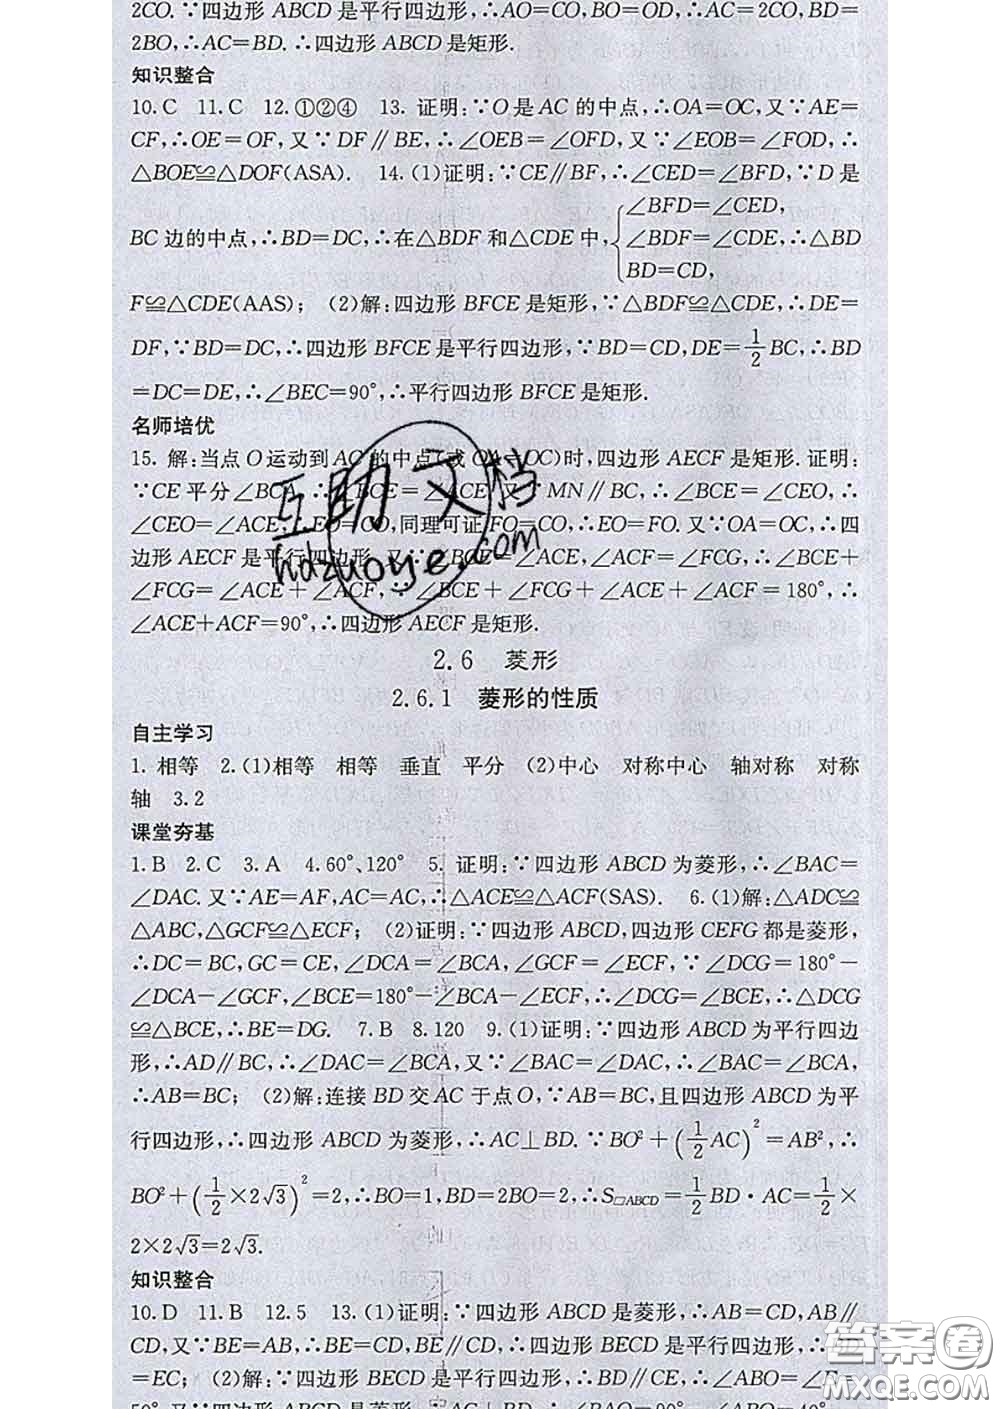 2CO.∵四边形 ABCD 是平行四边形,∴AO=CO,BO=OD,∴AC=2CO,BD=
2BO,∴AC=BD.∴四边形 ABCD 是矩形.
知识整合
10.C 11.C 12.①②④ 13. 证明:∵O 是 AC 的中点,∴OA=OC,又∵AE=
CF,∴OE=OF,又∵DF∥BE,∴∠OEB=∠OFD,又∵∠EOB=∠FOD,∴
△BOE≌△DOF(ASA). 14.(1)证明:∵CE∥BF,∴∠CED=∠BFD,∵D 是
BC 边的中点,∴BD=DC,∴在△BDF 和△CDE 中,{∠BFD=∠CED, ∠BDF=∠CDE, BD=CD, ∴△BD
F≌△CDE(AAS); (2)解:四边形 BFCE 是矩形,∵△BDF≌△CDE,∴DE=
DF,∵BD=DC,∴四边形 BFCE 是平行四边形,∵BD=CD,DE=1/2 BC,∴BD
=DC=DE,∴∠BEC=90°,∴平行四边形 BFCE 是矩形.
名师培优
15. 解:当点 O 运动到 AC 的中点(或 OA=OC)时,四边形 AECF 是矩形.证明:
∵CE 平分∠BCA,∴∠BCE=∠ACE,又∵MN∥BC,∴∠BCE=∠CEO,∴
∠CEO=∠ACE,∴EO=CO,同理可证 FO=CO,∴EO=FO.又∵OA=OC,∴四
边形 AECF 是平行四边形,又∵∠BCE=∠ACE,∠ACF=∠FCG,∴∠BCE+
∠FCG=∠ACE+∠ACF,∵∠BCE+∠FCG+∠ACE+∠ACF=180°,∴
∠ACE+ACF=90°,∴四边形 AECF 是矩形.
互助文档
hdzuoye.com
2.6 菱形
2.6.1 菱形的性质
自主学习
1. 相等 2.(1)相等 相等 垂直 平分 (2)中心 对称中心 轴对称 对称
轴 3.2
课堂夯基
1.B 2.C 3.A 4.60°、120° 5. 证明:∵四边形 ABCD 为菱形,∴∠BAC=
∠DAC.又∵AE=AF,AC=AC,∴△ACE≌△ACF(SAS). 6.(1)解:△ADC≌
△ABC,△GCF≌△ECF; (2)证明:∵四边形 ABCD,四边形 CEFG 都是菱形,
∴DC=BC,GC=CE,∠DCA=∠BCA,∠GCF=∠ECF,∵∠DCG=180°-
∠DCA-∠GCF,∠BCE=180°-∠BCA-∠ECF,∴∠DCG=∠BCE,∴△DCG
≌△BCE,∴BE=DG. 7.B 8.120 9.(1)证明:∵四边形 ABCD 为平行四边
形,∴AD∥BC,∴∠DAC=∠BCA,又∵∠BAC=∠DAC,∴∠BAC=∠BCA,
∴AB=BC; (2)解:连接 BD 交 AC 于点 O,∵AB=BC,且四边形 ABCD 为平
行四边形,∴四边形 ABCD 为菱形,∴AC⊥BD.∵BO²+(1/2 AC)²=AB²,∴
BO²+(1/2×2√3)²=2,∴BO=1,BD=2BO=2,∴S□ABCD=1/2 BD·AC=1/2×
2×2√3=2√3.
知识整合
10.D 11.B 12.5 13.(1)证明:∵四边形 ABCD 是菱形,∴AB=CD,AB∥
CD,又∵BE=AB,∴BE=CD,BE∥CD,∴四边形 BECD 是平行四边形,∴BD
=EC; (2)解:∵四边形 BECD 是平行四边形,∴BD∥CE,∴∠ABO=∠E=
50°,又∵四边形 ABCD 是菱形,∴AC⊥BD,∴∠BAO=90°-∠ABO=40°.
答案圈
MXQE.COM